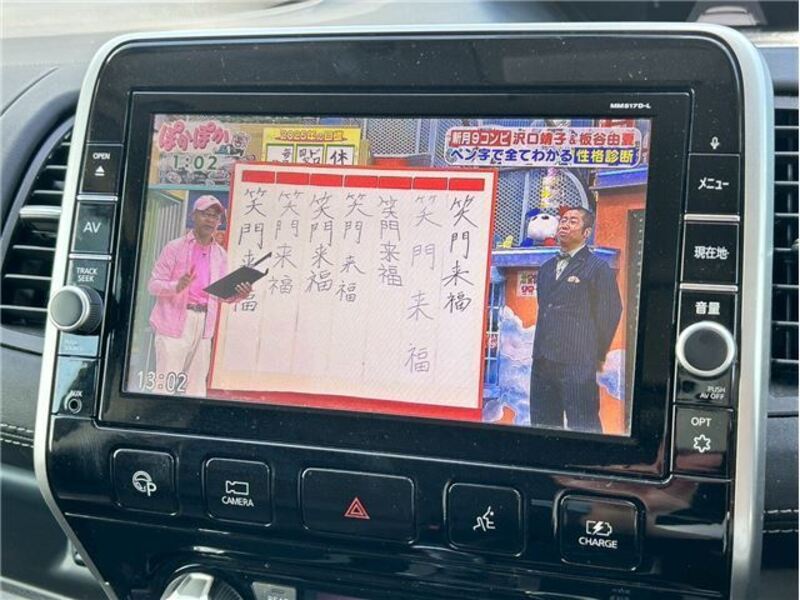 MM517D-L
ぽかぽか
1:02
2025年の目標
休
新月9コンビ沢口靖子&板谷由夏
ペン字で全てわかる 性格診断
笑門来福
笑門来福
笑門来福
笑門来福
笑門来福
笑門来福
笑門来福
13:02
OPEN
AV
TRACK
SEEK
AUX
メニュー
現在地
音量
PUSH
AV OFF
OPT
CAMERA
CHARGE